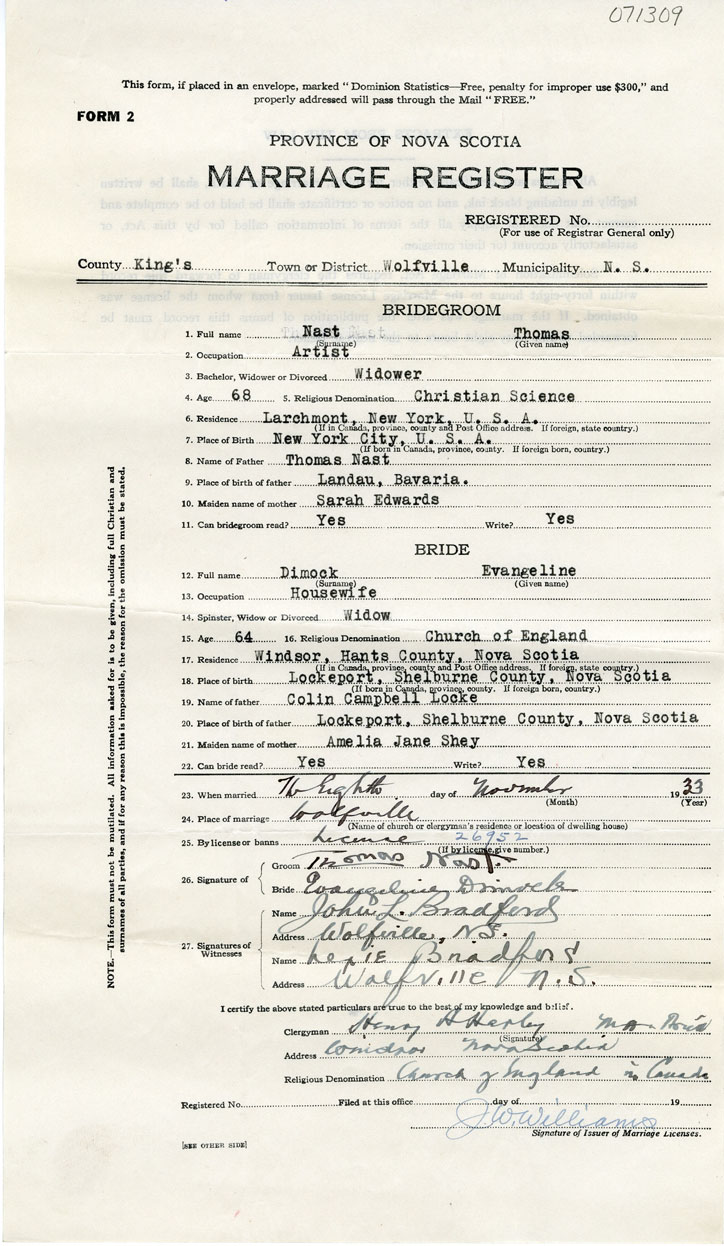 071309
This form, if placed in an envelope, marked "Dominion Statistics—Free, penalty for improper use $300," and
properly addressed will pass through the Mail "FREE."
FORM 2
PROVINCE OF NOVA SCOTIA
MARRIAGE REGISTER
REGISTERED No.
(For use of Registrar General only)
County King's Town or District Wolfville Municipality N. S.
BRIDEGROOM
1. Full name Nast Thomas
(Surname) (Given name)
2. Occupation Artist
3. Bachelor, Widower or Divorced Widower
4. Age 68 5. Religious Denomination Christian Science
6. Residence Larchmont, New York, U. S. A.
(If in Canada, province, county and Post Office address. If foreign, state country.)
7. Place of Birth New York City, U. S. A.
(If born in Canada, province, county. If foreign born, country.)
8. Name of Father Thomas Nast
9. Place of birth of father Landau, Bavaria.
10. Maiden name of mother Sarah Edwards
11. Can bridegroom read? Yes Write? Yes
BRIDE
12. Full name Dimock Evangeline
(Surname) (Given name)
13. Occupation Housewife
14. Spinster, Widow or Divorced Widow
15. Age 64 16. Religious Denomination Church of England
17. Residence Windsor, Hants County, Nova Scotia
(If in Canada, province, county and Post Office address. If foreign, state country.)
18. Place of birth Lockeport, Shelburne County, Nova Scotia
(If born in Canada, province, county. If foreign born, country.)
19. Name of father Colin Campbell Locke
20. Place of birth of father Lockeport, Shelburne County, Nova Scotia
21. Maiden name of mother Amelia Jane Shey
22. Can bride read? Yes Write? Yes
23. When married Eighth day of November 1933
(Month) (Year)
24. Place of marriage Wolfville
(Name of church or clergyman's residence or location of dwelling house)
25. By license or banns License 26952
(If by license, give number.)
26. Signature of
Groom Thomas Nast.
Bride Evangeline Dimock
27. Signatures of Witnesses
Name John L. Bradford
Address Wolfville, N.S.
Name Bradford
Address Wolfville N.S.
I certify the above stated particulars are true to the best of my knowledge and belief.
Clergyman Henry
(Signature)
Address Windsor Nova Scotia
Religious Denomination Church of England in Canada
Registered No. Filed at this office day of 19
J.W. Williams
Signature of Issuer of Marriage Licenses.
[SEE OTHER SIDE]
NOTE.—This form must not be mutilated. All information asked for is to be given, including full Christian and
surnames of all parties, and if for any reason this is impossible, the reason for the omission must be stated.